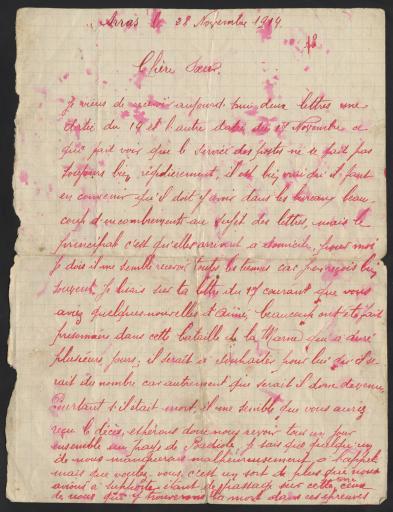 Arras le 28 Novembre 1914
18
Chère Sœur.
Je viens de recevoir aujourd'hui deux lettres une
datée du 14 et l'autre datée du 17 Novembre ce
qui fait voir que le service des postes ne se fait pas
toujours bien régulièrement, il est bien vrai qu'il faut
en convenir qu'il doit y avoir dans les bureaux beau
coup d'encombrements au sujet des lettres, mais le
principal c'est qu'elles arrivent a domicile, pour moi
Je dois il me semble recevoir toutes les tiennes car j'en reçois bien
souvent, Je lisais sur ta lettre du 17 courant que vous
avez quelques nouvelles d'Aimé, beaucoup ont été fait
prisonniers dans cette bataille de la Marne qui a duré
plusieurs jours, il serait a souhaiter pour lui qu'il se
rait du nombre car autrement que serait il donc devenu,
Pourtant s'il était mort, il me semble que vous auriez
reçu le décès, espérons donc nous revoir tous un jour
ensemble au pays de, Je sais que quelqu'un
de nous manquerais malheureusement a l'appel
mais que voulez vous, c'est un sort de plus que nous
avons a supporter étant de passage sur cette terre
de nous que y trouverons la mort dans ces épreuves